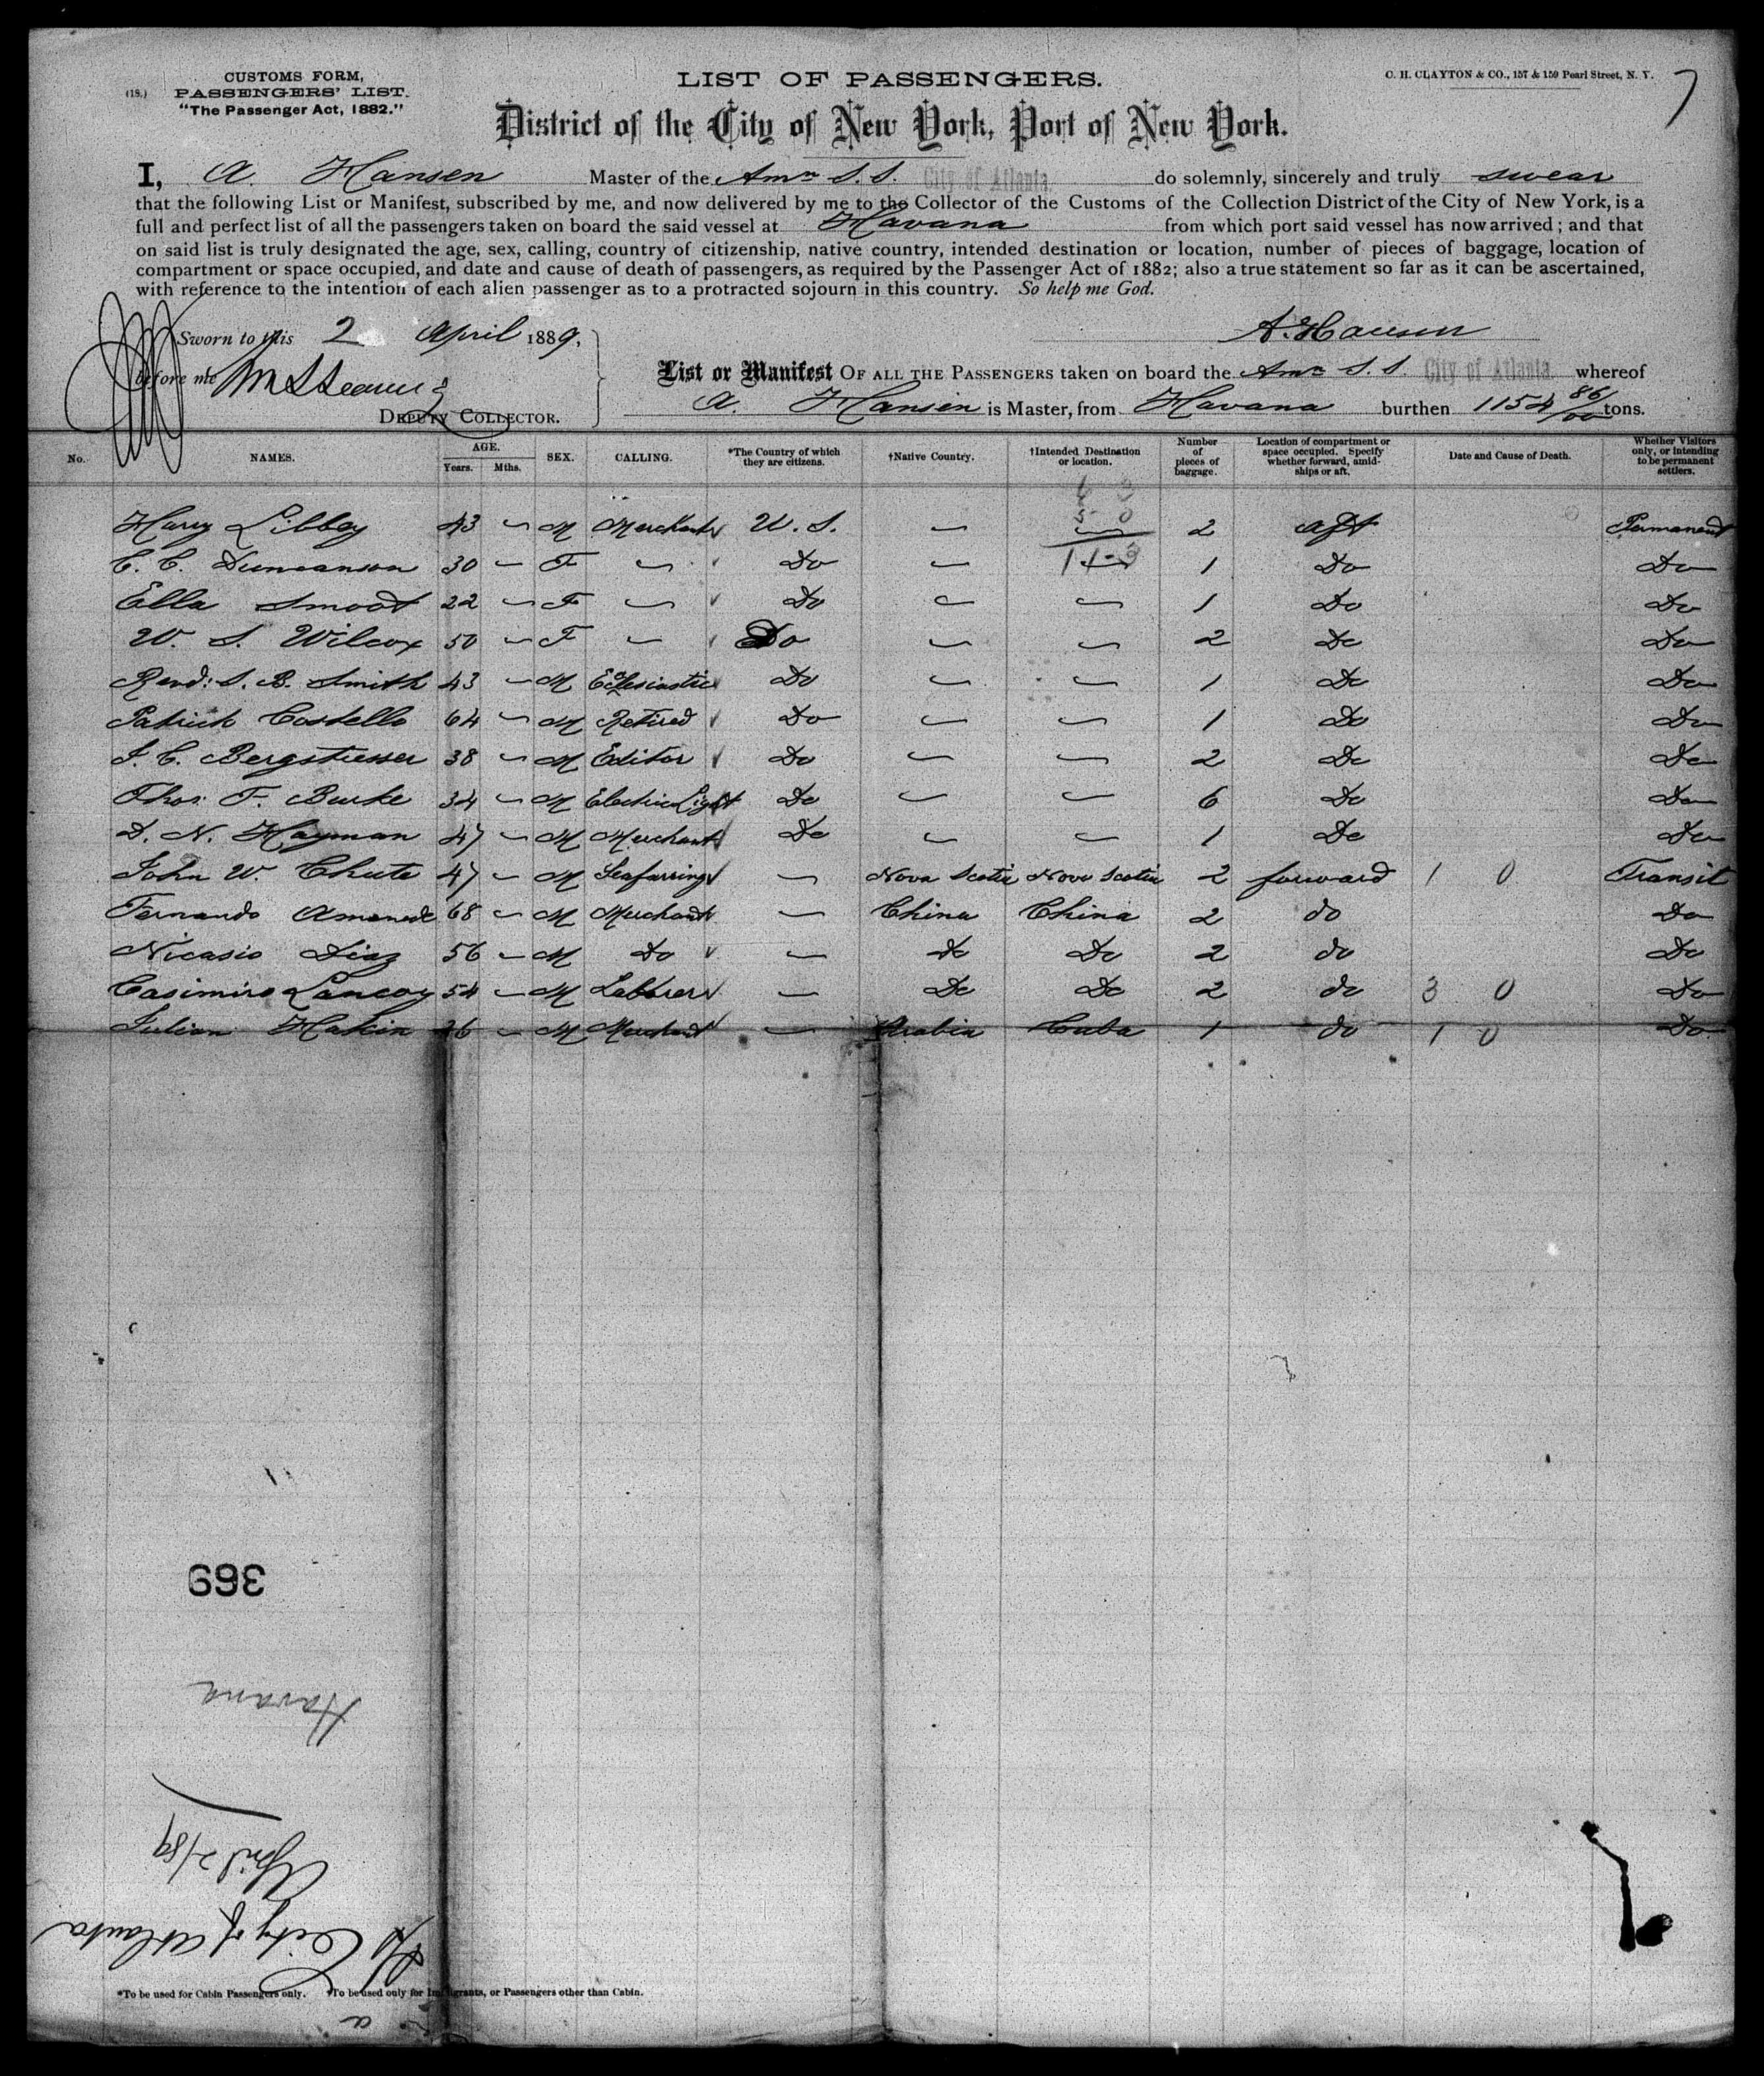 (18.) CUSTOMS FORM,
PASSENGERS' LIST.
"The Passenger Act, 1882."
LIST OF PASSENGERS.
C. H. CLAYTON & CO., 157 & 159 Pearl Street, N. Y.
7
District of the City of New York, Port of New York.
I, A. Hansen Master of the Amn S.S. City of Atlanta. do solemnly, sincerely and truly swear
that the following List or Manifest, subscribed by me, and now delivered by me to the Collector of the Customs of the Collection District of the City of New York, is a
full and perfect list of all the passengers taken on board the said vessel at Havana from which port said vessel has now arrived; and that
on said list is truly designated the age, sex, calling, country of citizenship, native country, intended destination or location, number of pieces of baggage, location of
compartment or space occupied, and date and cause of death of passengers, as required by the Passenger Act of 1882; also a true statement so far as it can be ascertained,
with reference to the intention of each alien passenger as to a protracted sojourn in this country. So help me God.
Sworn to this 2 April 1889,
A. Hansen
before me
List or Manifest OF ALL THE PASSENGERS taken on board the Amn S.S. City of Atlanta. whereof
DEPUTY COLLECTOR.
A. Hansen is Master, from Havana burthen 1154 86/00 tons.
No. NAMES. AGE. Years. Mths. SEX. CALLING. *The Country of which they are citizens. †Native Country. †Intended Destination or location. Number of pieces of baggage. Location of compartment or space occupied. Specify whether forward, amidships or aft. Date and Cause of Death. Whether Visitors only, or intending to be permanent settlers.
5 0
11-3
Harry Libbey 43 — M Merchant U. S. — — 2 aft Permanent
C. C. Duncanson 30 — F — Do — — 1 Do Do
Ella Smoot 22 — F — Do — — 1 Do Do
W. S. Wilcox 50 — F — Do — — 2 Do Do
Revd: S. B. Smith 43 — M Eclesiastic Do — — 1 Do Do
Patrick Costello 64 — M Retired Do — — 1 Do Do
J. C. Bergstresser 38 — M Editor Do — — 2 Do Do
Thos: F. Burke 34 — M Electric Light Do — — 6 Do Do
D. N. Hayman 47 — M Merchant Do — — 1 Do Do
John W. Chute 47 — M Seafarring — Nova Scotia Nova Scotia 2 forward 1 0 Transit
Fernando 68 — M Merchant — China China 2 do Do
Nicasio Diaz 56 — M Do — Do Do 2 do Do
Casimiro 54 — M Laborer — Do Do 2 do 3 0 Do
Julian 26 — M Merchant — Arabia Cuba 1 do 1 0 Do
369
Havana
April 2/89
City of Atlanta
*To be used for Cabin Passengers only. †To be used only for Immigrants, or Passengers other than Cabin.